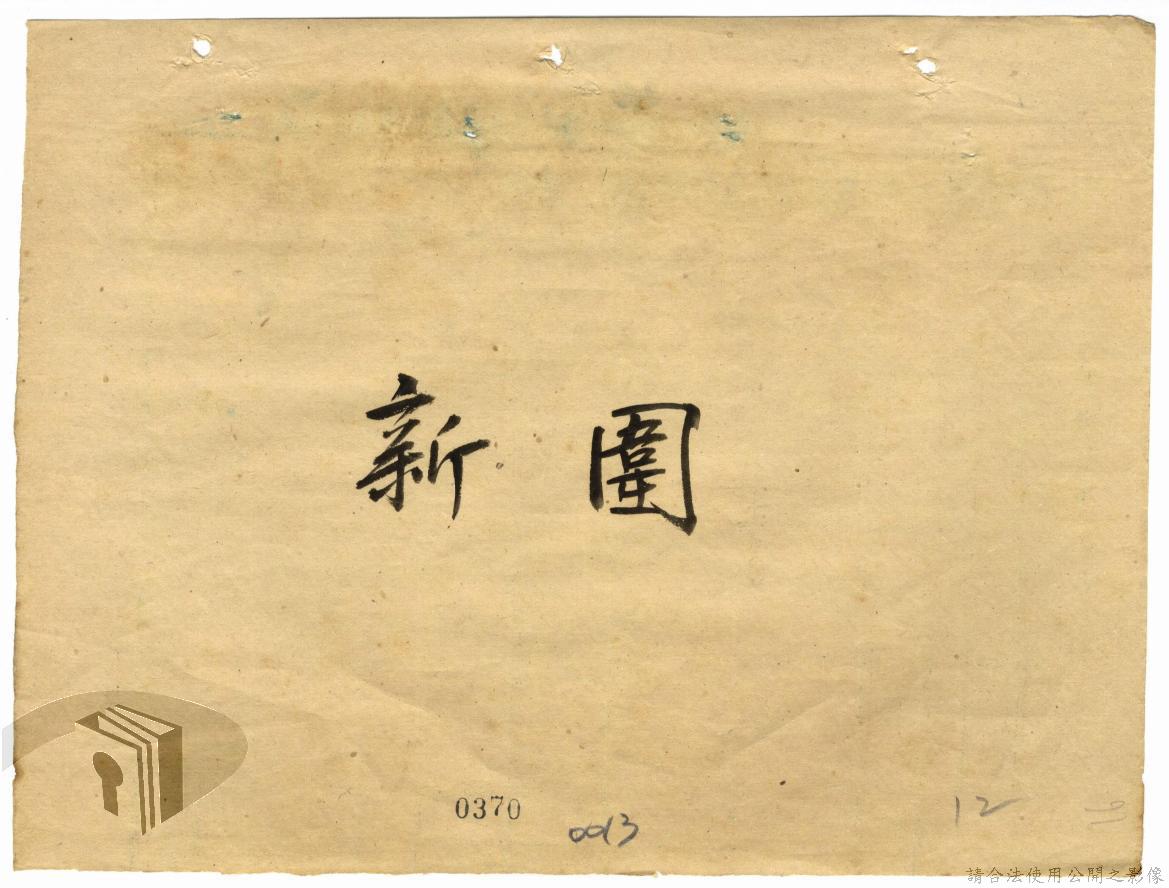 新圍
0370
0013
12
請合法使用公開之影像